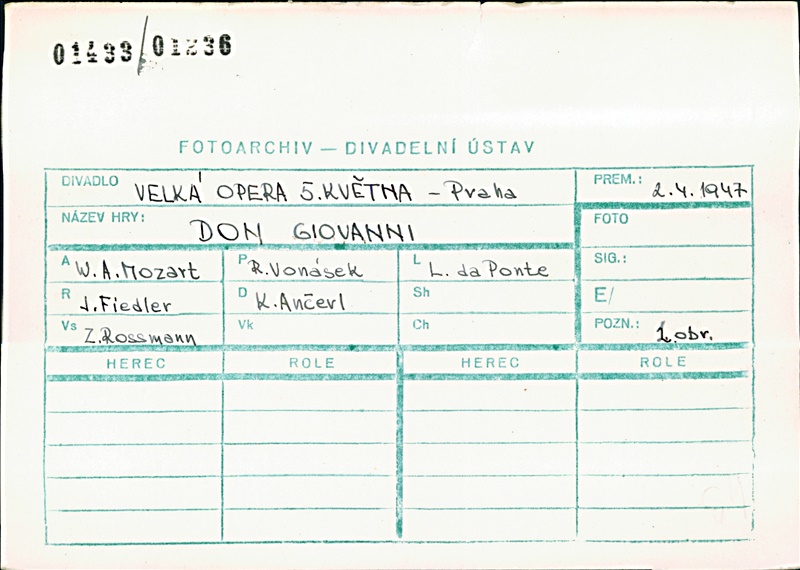 01433/01236
FOTOARCHIV — DIVADELNÍ ÚSTAV
DIVADLO VELKÁ OPERA 5.KVĚTNA - Praha
PREM.: 2.4.1947
NÁZEV HRY: DON GIOVANNI
FOTO
A W.A.Mozart P R.Vonásek L L. da Ponte
SIG.:
R J.Fiedler D K.Ančerl Sh
E/
Vs Z.Rossmann Vk Ch
POZN.: 1.obr.
HEREC ROLE HEREC ROLE